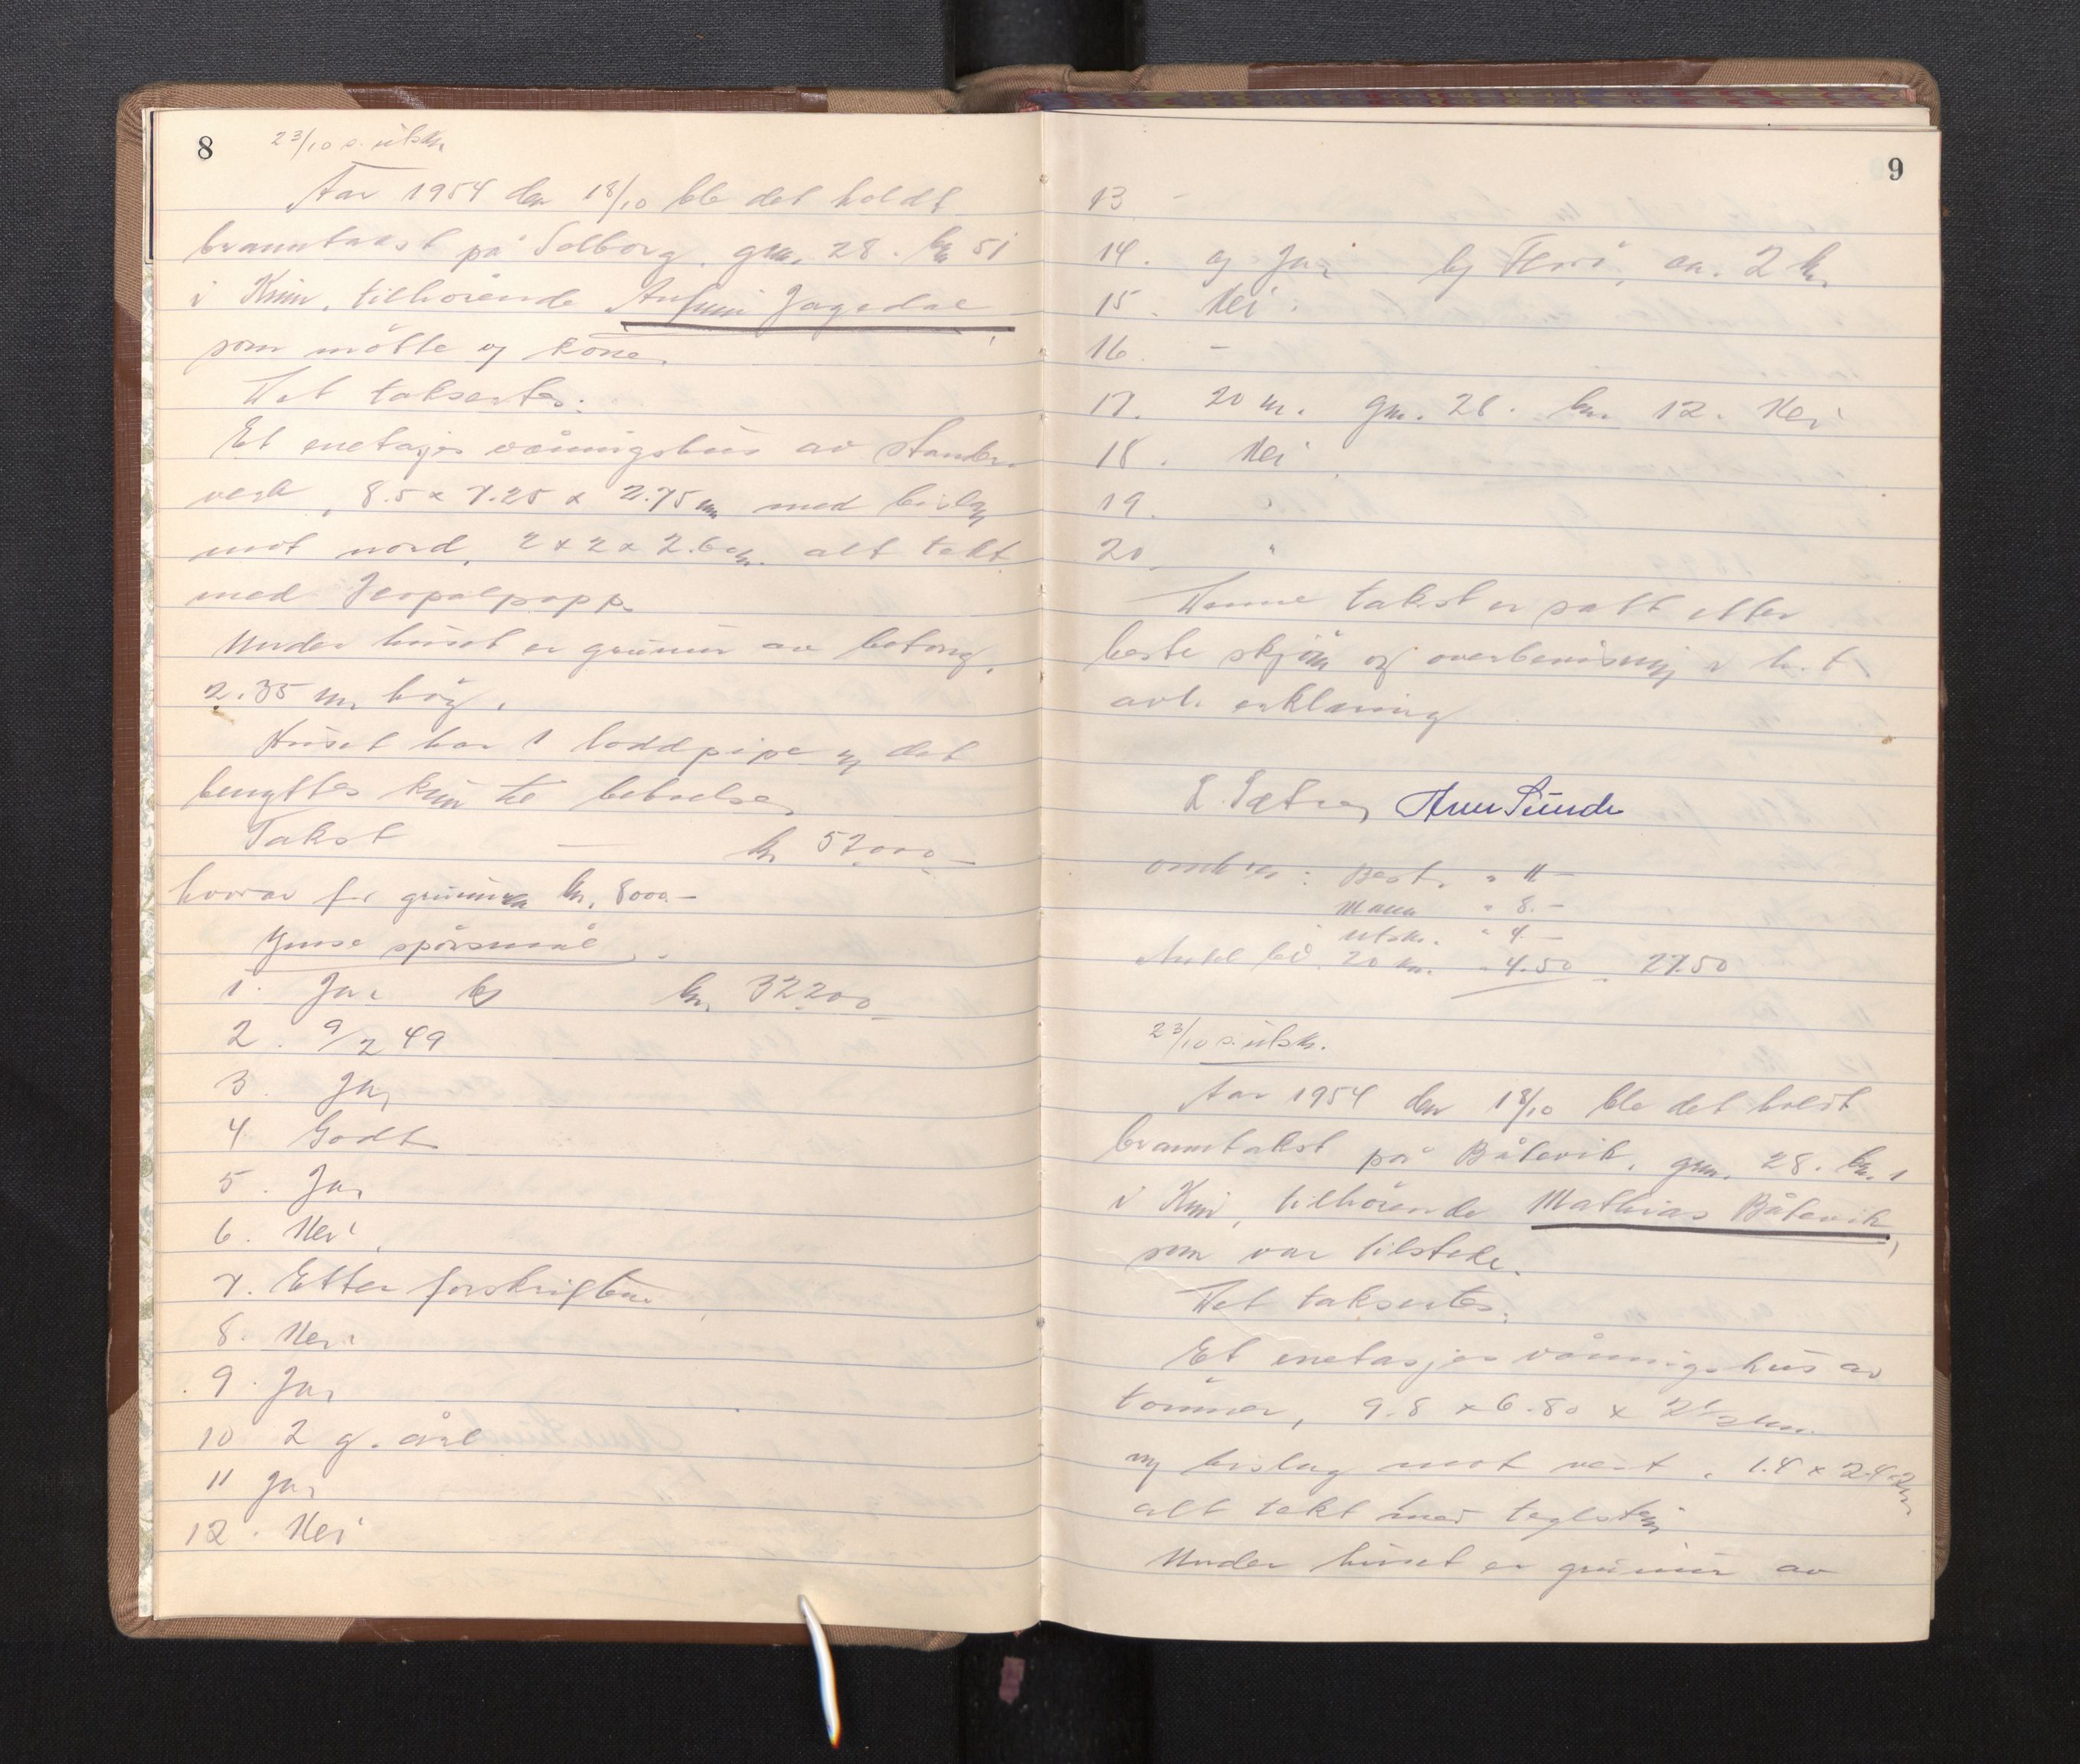 8
23/10 s. utskr.
Aar 1954 den 18/10 ble det holdt
branntakst på Solborg, gnr. 28. bnr 51
i Kinn, tilhørende Jagedal
som møtte og kone.
Det taksertes:
Et enetasjes våningshus av stender
verk, 8.5 x 7.25 x 2.75 m med bislag
mot nord, 2 x 2 x 2.60 m. alt tekt
med papp.
Under huset er grunmur av betong,
2.35 m. høg.
Huset har 1 loddpipe og det
benyttes kun til beboelse,
Takst — kr 52000 —
hvorav for grunmuren kr. 8000.—
Ymse spørsmål:
1. Ja, kr. 32200 —
2. 9/2 49
3. Ja,
4 Godt
5. Ja,
6. Nei.
7. Etter forskriftene
8. Nei.
9. Ja,
10 2 g. året
11 Ja,
12. Nei
9
13 -
14. og Ja, Florø, ca. 2 km
15. Nei.
16. -
17. 20 m. gnr. 28. bnr. 12. Nei
18. Nei
19. "
20. "
Denne takst er satt etter
beste skjøn og overbevisning i h.t
avl. erklæring
L. Sætre, Arne Sunde
Best. " 11 —
Mann " 8. —
Utskr. " 4 —
20 km. " 4.50 27.50
23/10 s. utskr.
Aar 1954 den 18/10 ble det holdt
branntakst på Båtevik, gnr. 28. bnr. 1
i Kinn, tilhørende Mathias Båtevik,
som var tilstede.
Det taksertes:
Et enetasjes våningshus av
tømmer, 9.8 x 6.80 x 2 1/2 m.
og bislag mot vest, 1.4 x 2.4 x 2 m
alt tekt med teglstein
Under huset er grunmur av